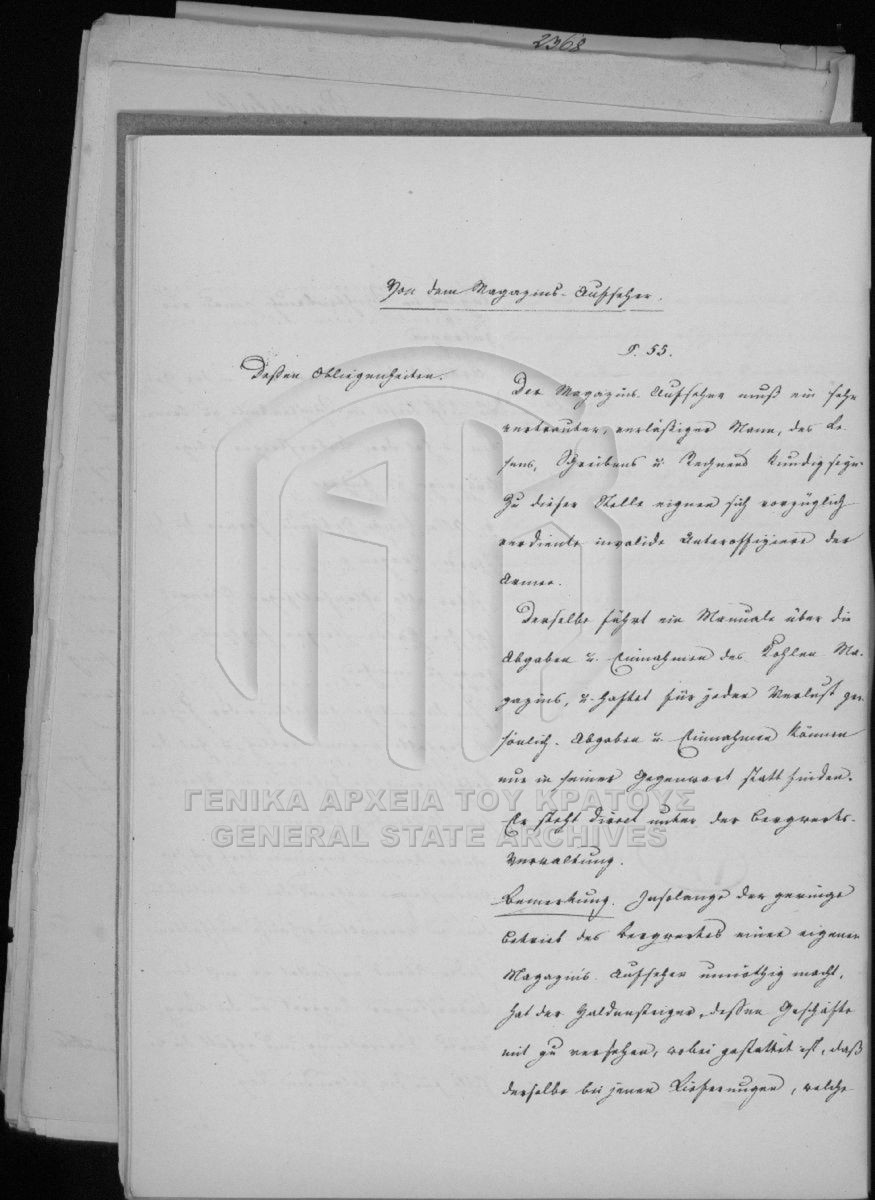 2368
Von dem Magazins-Aufseher.
§. 55.
Dessen Obliegenheiten.
Der Magazins-Aufseher muß ein sehr
vertrauter, verläßiger Mann, des Le-
sens, Schreibens u. Rechnens kundig seyn.
Zu dieser Stelle eignen sich vorzüglich
verdiente invalide Unteroffiziere der
Armee.
Derselbe führt ein Manuale über die
Abgaben u. Einnahmen des Kohlen Ma-
gazins, u. haftet für jeden Verlust per-
sönlich. Abgaben u. Einnahmen können
nur in seiner Gegenwart statt finden.
Er steht direct unter der Bergwerks-
Verwaltung.
Bemerkung. Insolange der geringe
Betrieb des Bergwerkes einen eigenen
Magazins-Aufseher unnöthig macht,
hat der Haldensteiger, dessen Geschäfte
mit zu versehen, wobei gestattet ist, daß
derselbe bei jenen Lieferungen, welche
ΓΕΝΙΚΑ ΑΡΧΕΙΑ ΤΟΥ ΚΡΑΤΟΥΣ
GENERAL STATE ARCHIVES